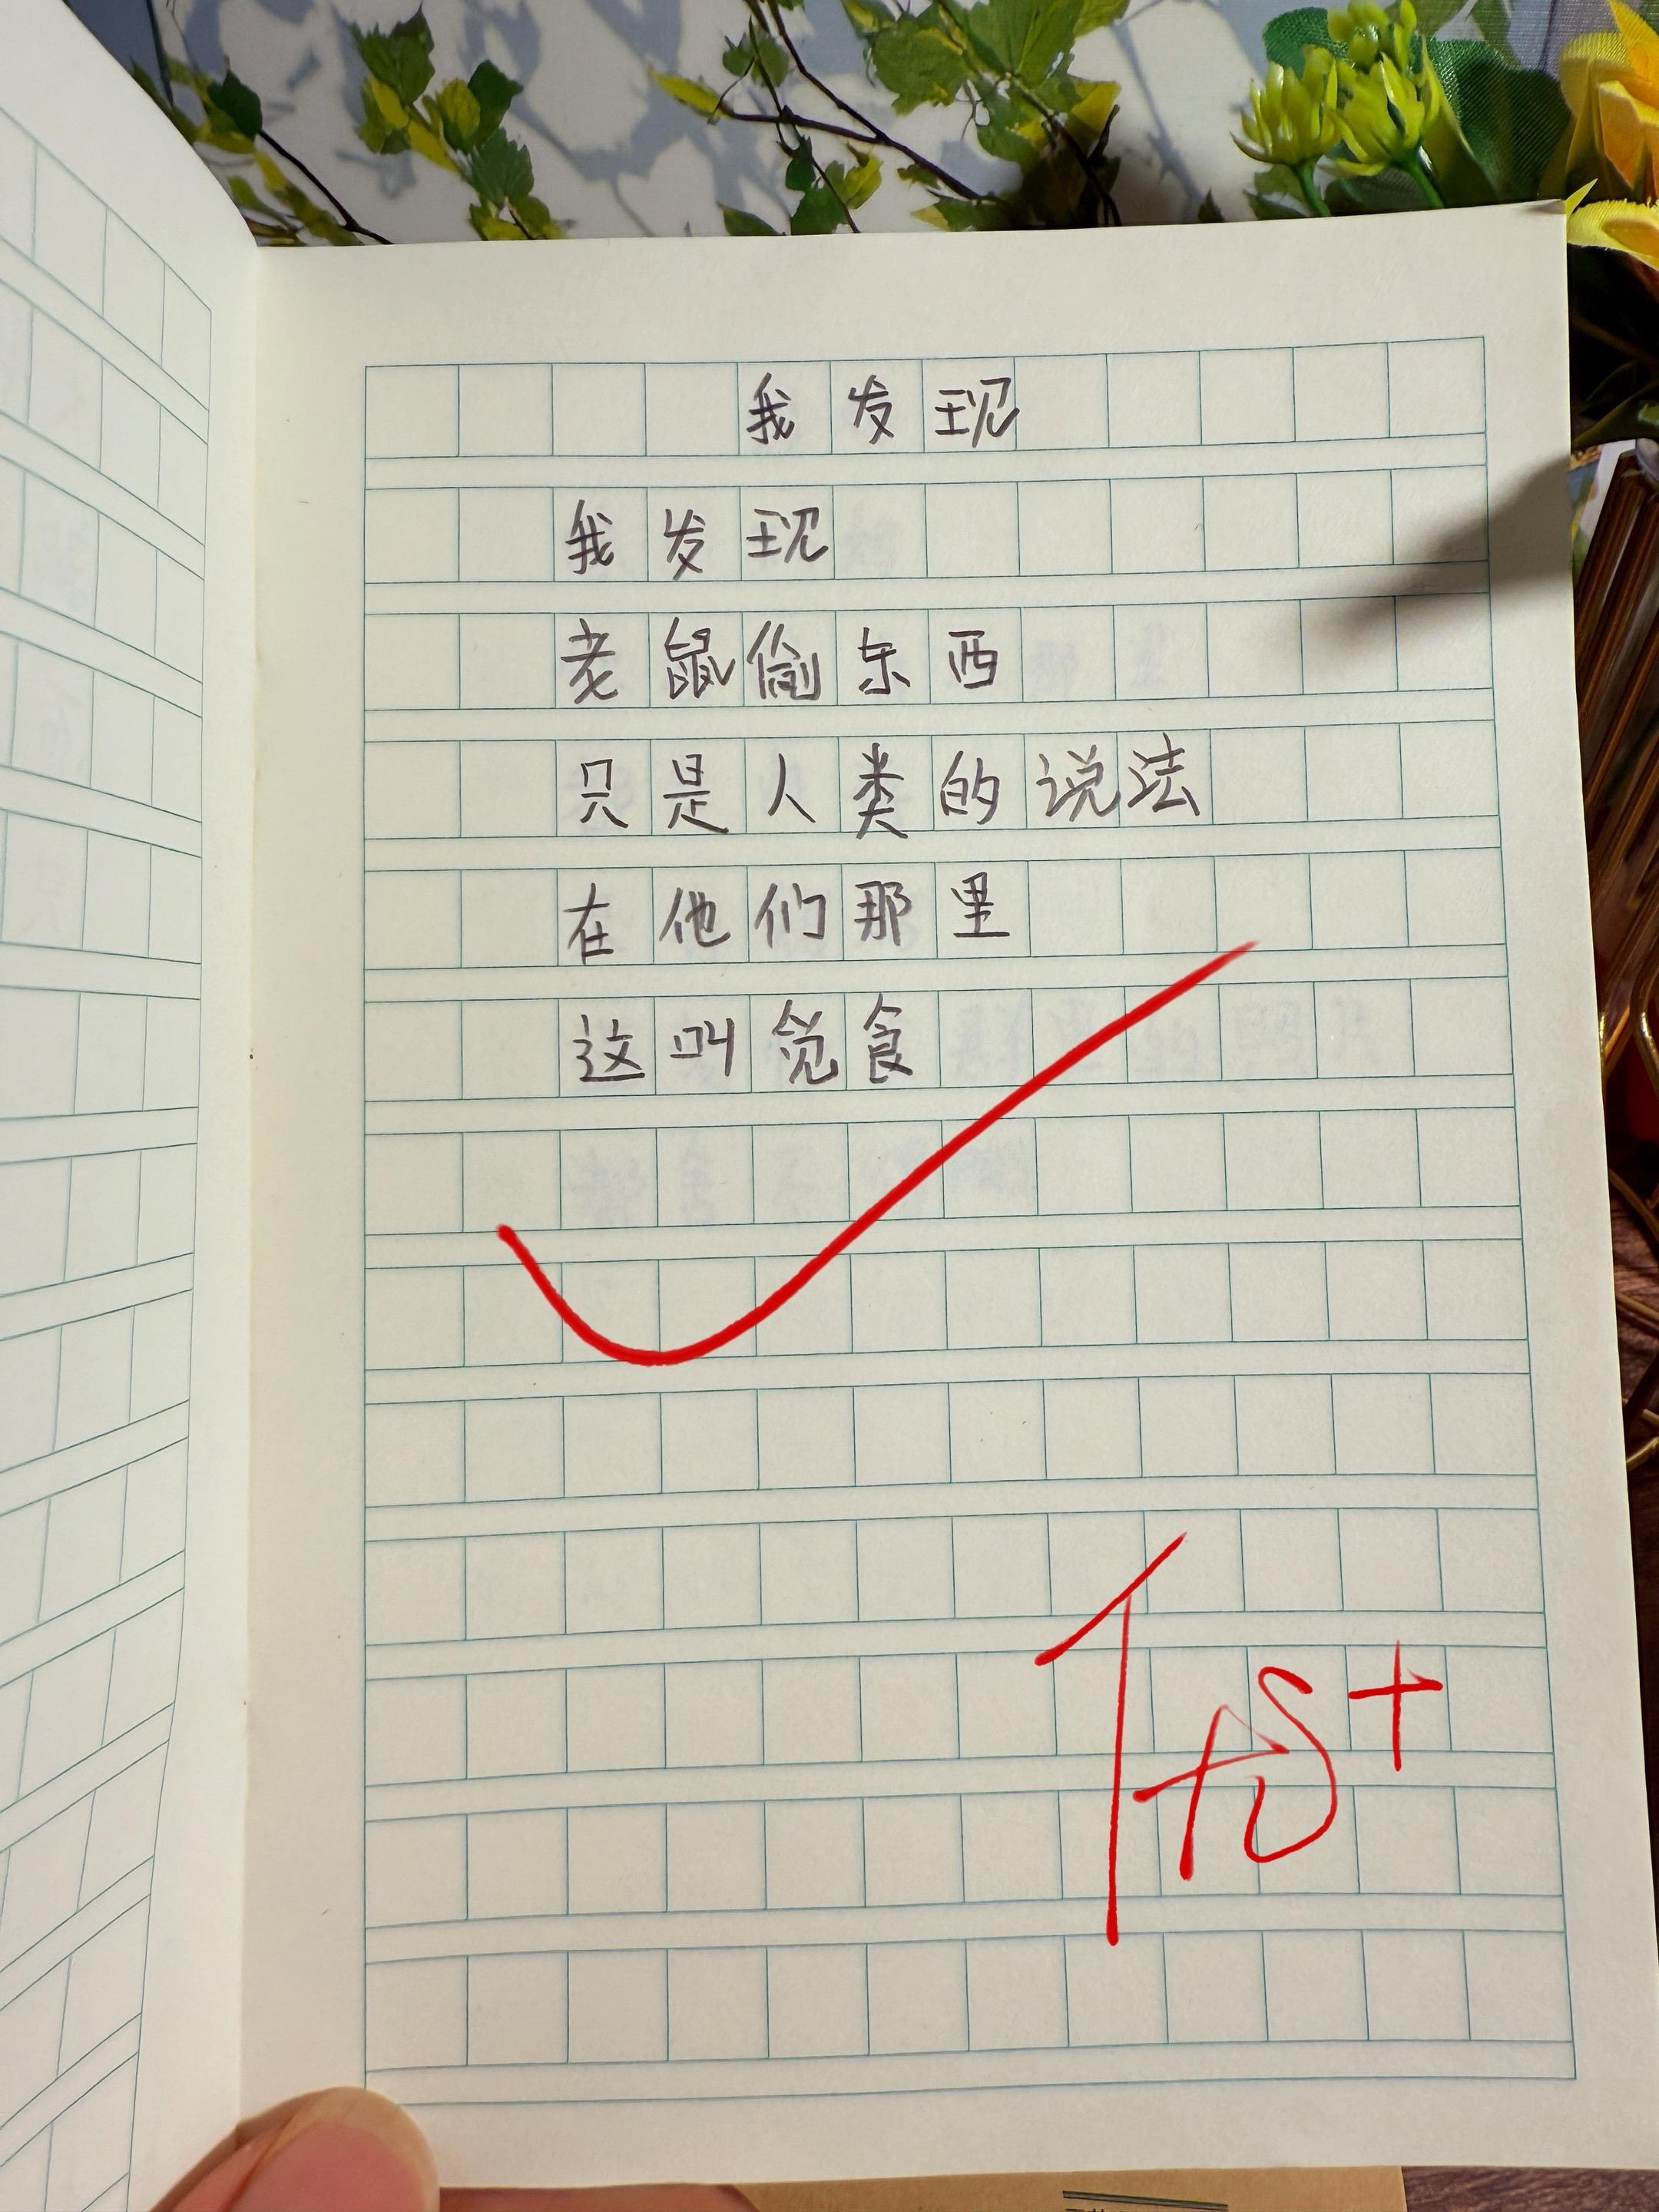 我发现
我发现
老鼠偷东西
只是人类的说法
在他们那里
这叫觅食
优+